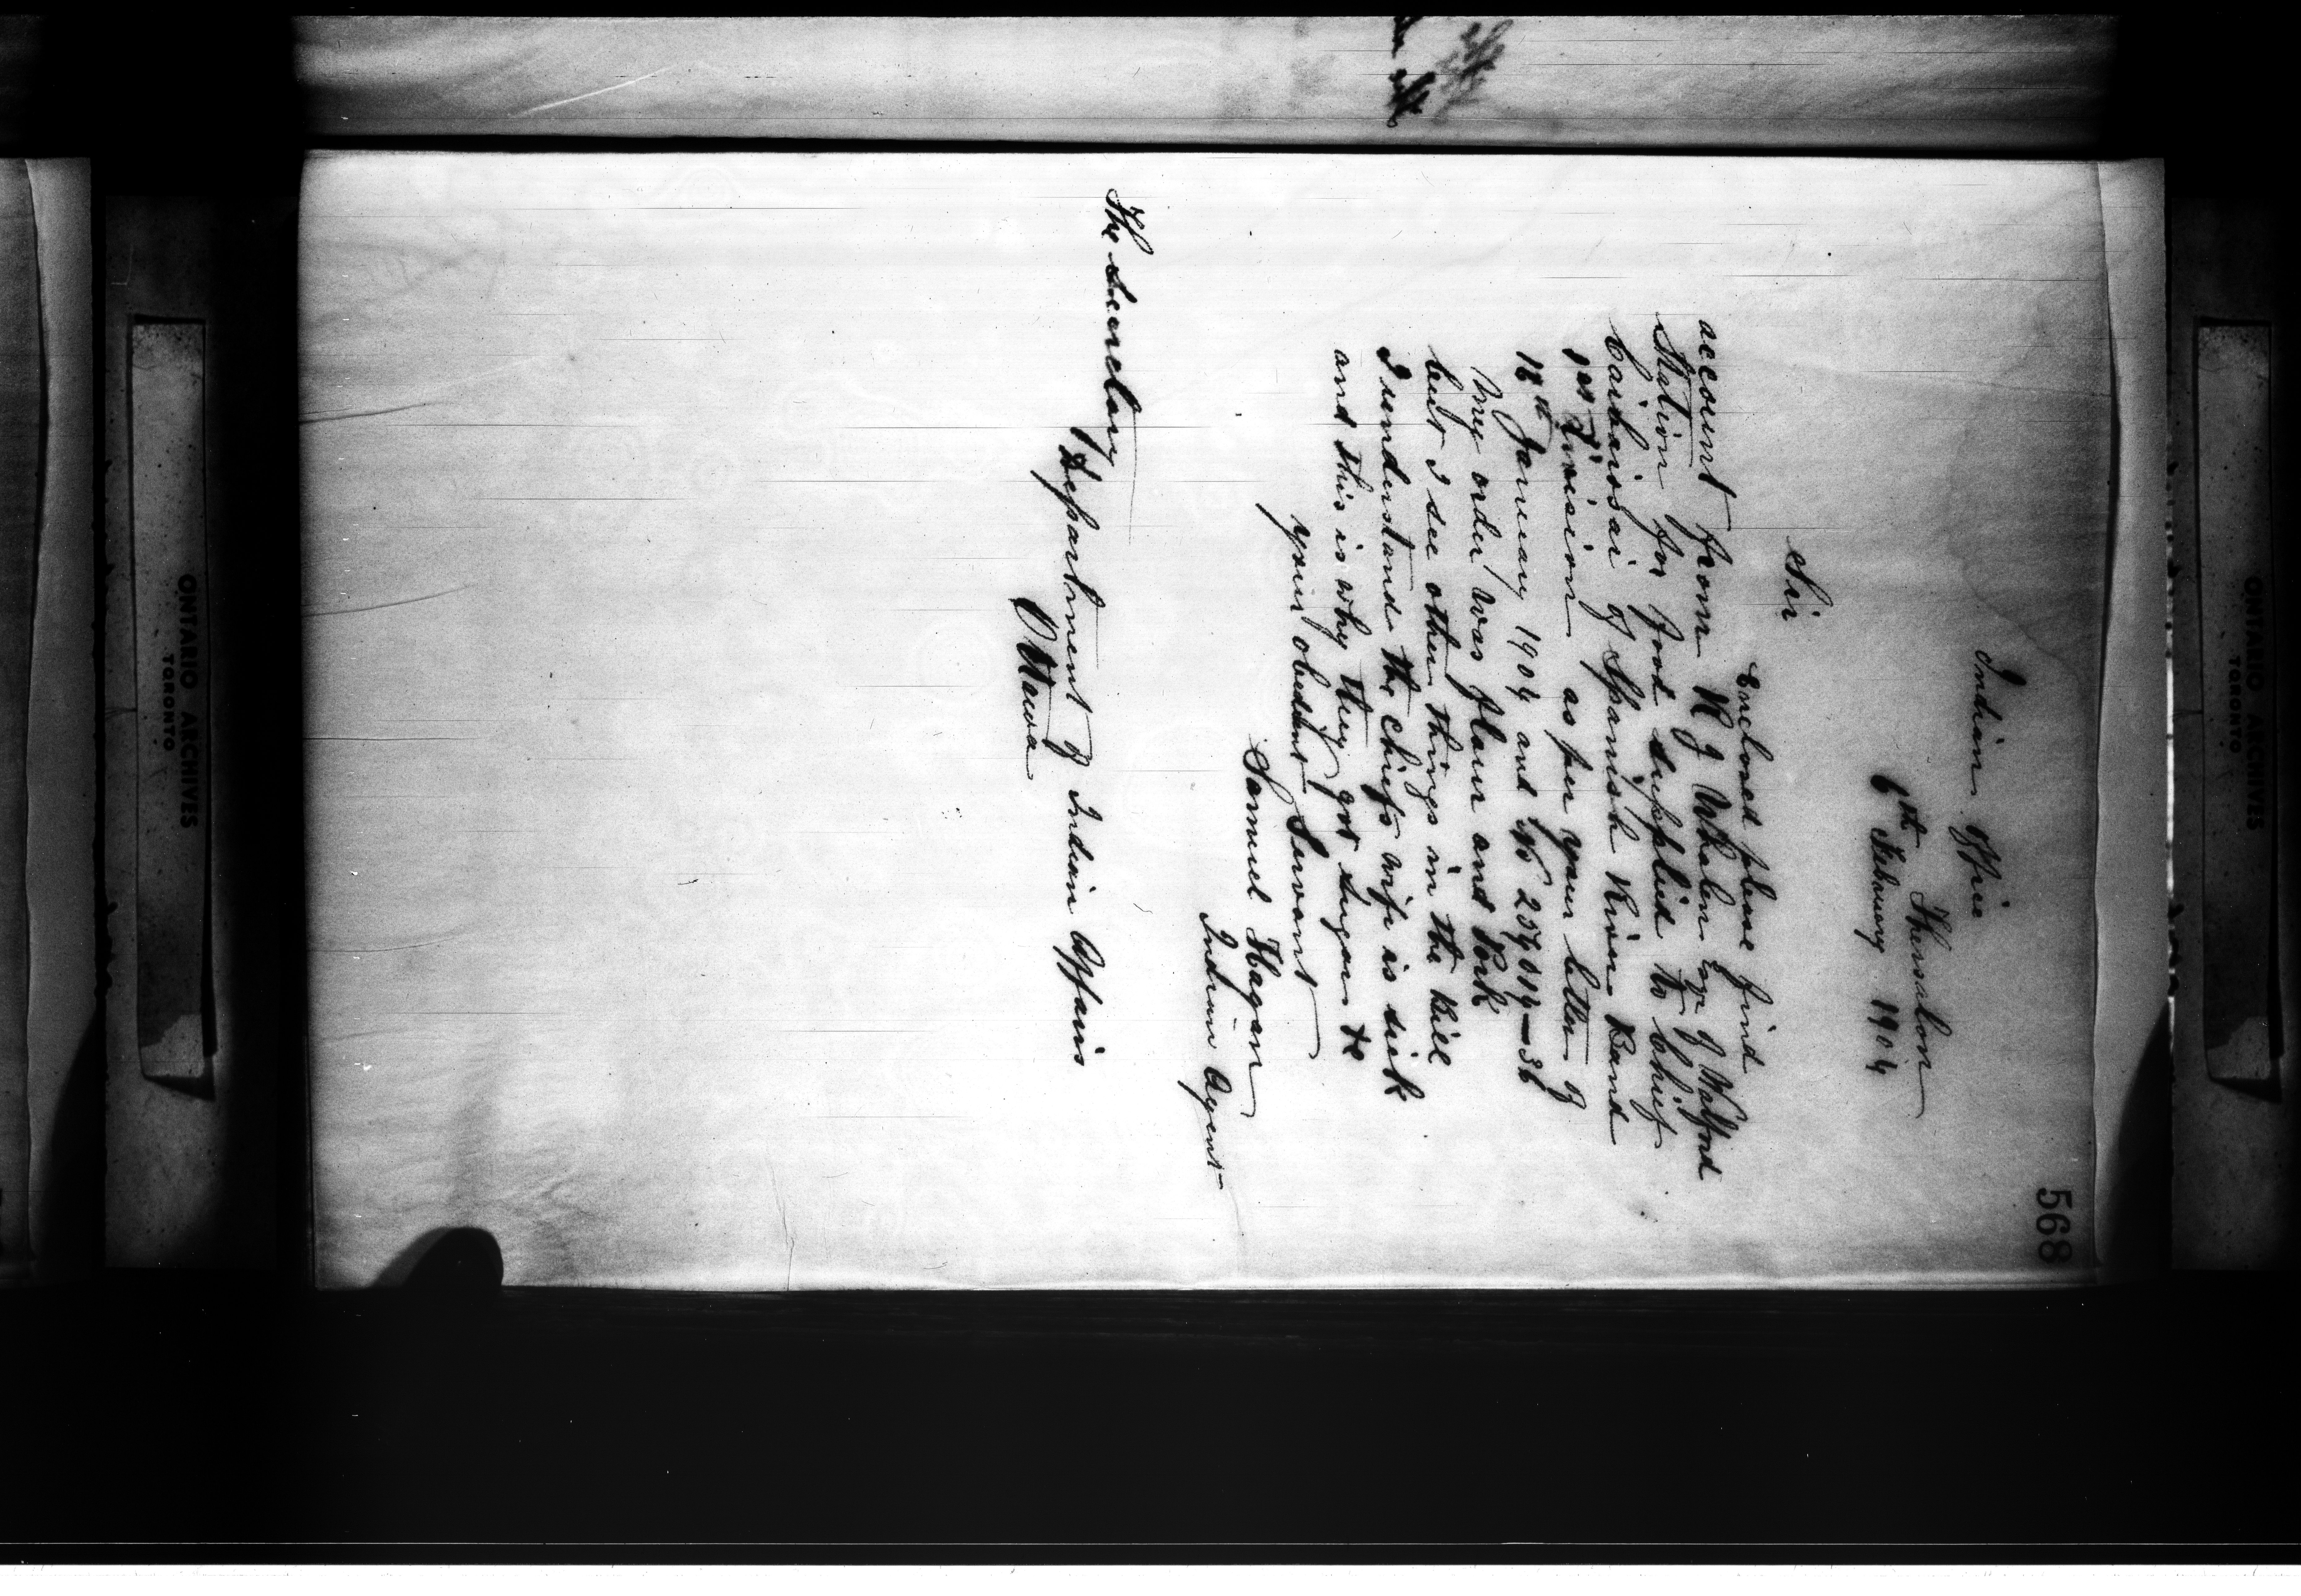 568
Indian Office
Thessalon
6th February 1904
Sir
Enclosed please find
account from R J Whalen Esq of Walford
Station for food supplied to Chief
of Spanish River Band
1st Division as per your letter of
18th January 1904 and No 254014-36
My order was flour and Pork
but I see other things in the Bill
I understand the Chiefs wife is sick
and this is why they got sugar &c
your obedient Servant
Samuel Hagan
Indian Agent
The Secretary
Department of Indian Affairs
Ottawa
ONTARIO ARCHIVES
TORONTO
ONTARIO ARCHIVES
TORONTO